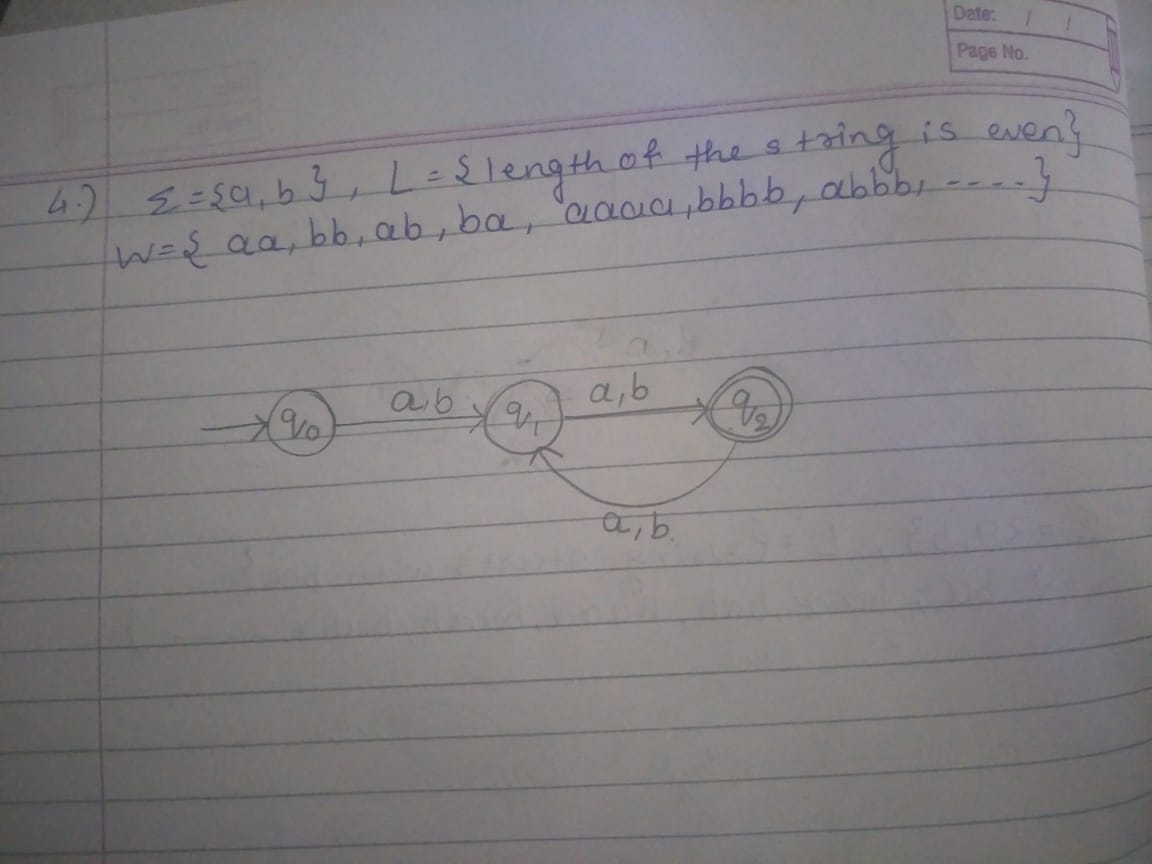 Date: / /
Page No.
4.) Σ={a,b}, L={length of the string is even}
W={ aa, bb, ab, ba, aaaa, bbbb, abbb, ----}
a,b a,b
q0 q1 q2
a,b.